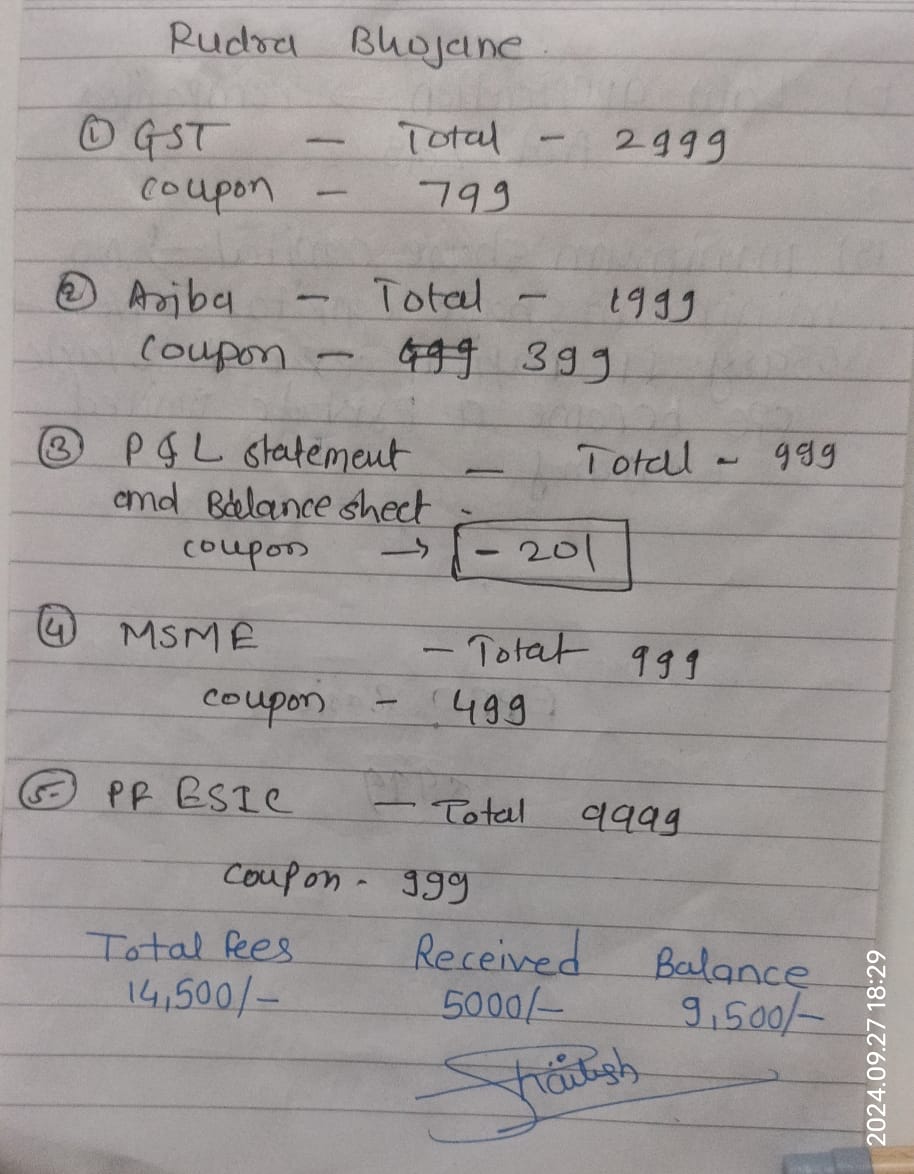 Rudra Bhojane
① GST – Total – 2999
coupon – 799
② Ariba – Total – 1999
coupon – 499 399
③ P & L statement – Total – 999
and Balance sheet -
coupon → - 201
④ MSME – Total 999
coupon – 499
⑤ PF ESIC – Total 9999
coupon - 999
Total fees Received Balance
14,500/- 5000/- 9,500/-
Shailesh
2024.09.27 18:29